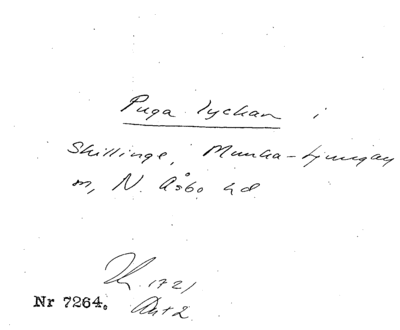 Puga lyckan i
Skillinge, Munka-Ljungby
m, N. Åsbo hd
1721
Nr 7264.